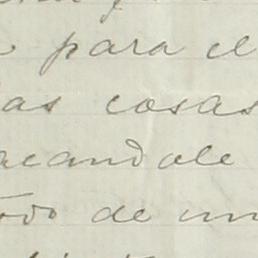 para el
as cosas
acandole
todo de un